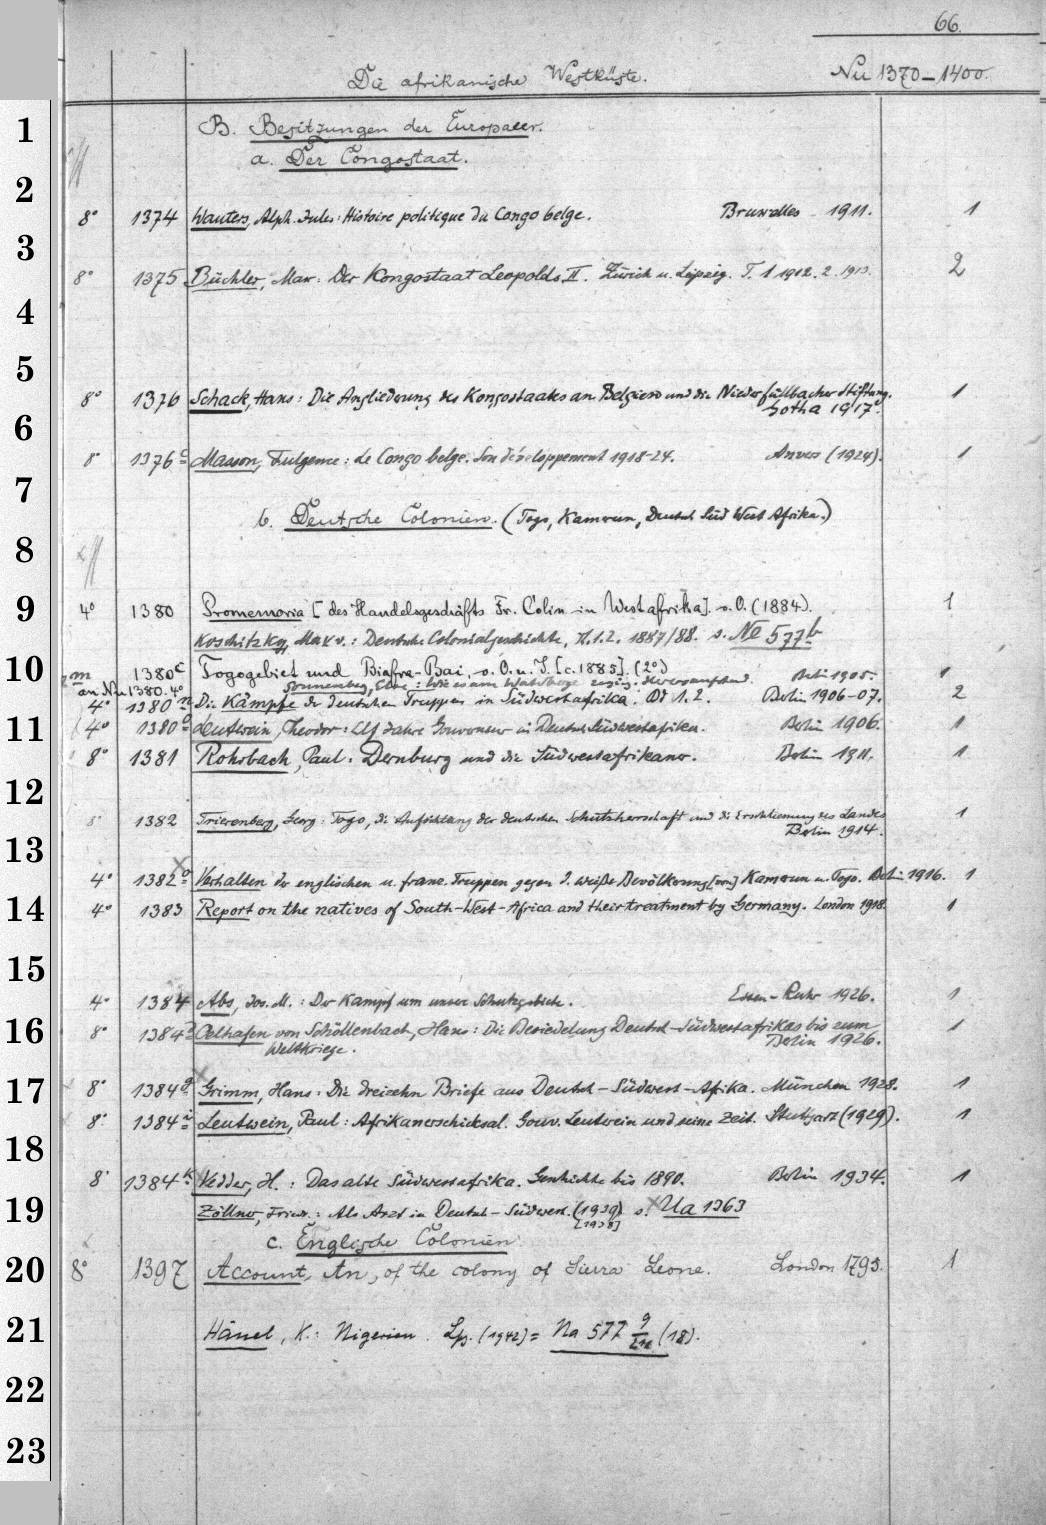 66.
Die afrikanische Westküste. Nu 1370-1400.
1
B. Besitzungen der Europaeer.
a. Der Congostaat.
2
8° 1374 Wauters, Alph. Jules: Histoire politique du Congo belge. Bruxelles 1911. 1
3
8° 1375 Büchler, Max: Der Kongostaat Leopolds II. Zürich u. Leipzig. T. 1 1912. 2. 1913. 2
4
5
8° 1376 Schack, Hans: Die Angliederung des Kongostaates an Belgien und die Niederfüllbacher Stiftung. 1
Gotha 1917.
6
8° 1376c Masson, Fulgence: Le Congo belge. Son développement 1918-24. Anvers (1924). 1
7
b. Deutsche Colonien. (Togo, Kamerun, Deutsch Süd West Afrika.)
8
9
4° 1380 Promemoria [des Handelsgeschäfts Fr. Colin in Westafrika]. o. O. (1884). 1
Koschitzky, Max v.: Deutsche Colonialgeschichte, Th. 1.2. 1887/88. s. Ne 577b
10
1380c Togogebiet und Biafra-Bai. o. O. u. J. [c. 1885]. (2°) 1
m an Nu 1380.4° Sonnenberg, Else: Wie es am Waterberge zuging: Hereroaufstand. Berlin 1905.
4° 1380n Die Kämpfe der deutschen Truppen in Südwestafrika. Bd 1. 2. Berlin 1906-07. 2
11
4° 1380o Leutwein, Theodor: Elf Jahre Gouverneur in Deutsch Südwestafrika. Berlin 1906. 1
8° 1381 Rohrbach, Paul: Dernburg und die Südwestafrikaner. Berlin 1911. 1
12
8° 1382 Trierenberg, Georg: Togo, die Aufrichtung der deutschen Schutzherrschaft und die Erschliessung des Landes 1
Berlin 1914.
13
4° 1382a Verhalten der englischen u. franz. Truppen gegen d. weiße Bevölkerung [von] Kamerun u. Togo. Berlin 1916. 1
14
4° 1383 Report on the natives of South-West-Africa and their treatment by Germany. London 1918. 1
15
4° 1384 Abs, Jos. M.: Der Kampf um unsere Schutzgebiete. Essen-Ruhr 1926. 1
16
8° 1384a Oelhafen von Schöllenbach, Hans: Die Besiedelung Deutsch-Südwestafrikas bis zum 1
Weltkriege. Berlin 1926.
17
8° 1384g Grimm, Hans: Die dreizehn Briefe aus Deutsch-Südwest-Afrika. München 1928. 1
8° 1384i Leutwein, Paul: Afrikanerschicksal. Gouv. Leutwein und seine Zeit. Stuttgart (1929). 1
18
8° 1384k Vedder, H.: Das alte Südwestafrika. Geschichte bis 1890. Berlin 1934. 1
19
Zöllner, Friedr.: Als Arzt in Deutsch-Südwest. (1939) s. Ua 1363
[1938]
c. Englische Colonien
20
8° 1397 Account, An, of the colony of Sierra Leone. London 1795. 1
21
Hänel, K.: Nigerien. Lpz. (1942) = Na 577 g (18).
22
23